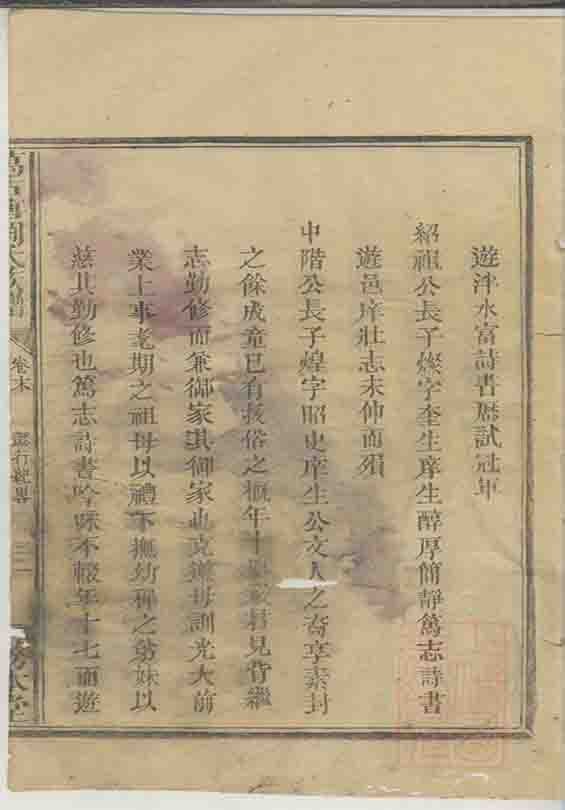 遊泮水富詩書歷試冠軍
紹祖公長子燦字奎生庠生醇厚簡靜篤志詩書
遊邑庠壯志未伸而殞
中階公長子煌字昭史庠生公文人之裔享素封
之餘成童已有拔俗之概年十見背繼
志勤修而兼御家其御家也克遵母訓光大前
業上事耄期之祖母以禮下撫幼稚之弟妹以
慈其勤修也篤志詩書吟味不輟年十七而遊
氏族譜
卷末
行紀畧
三
本堂